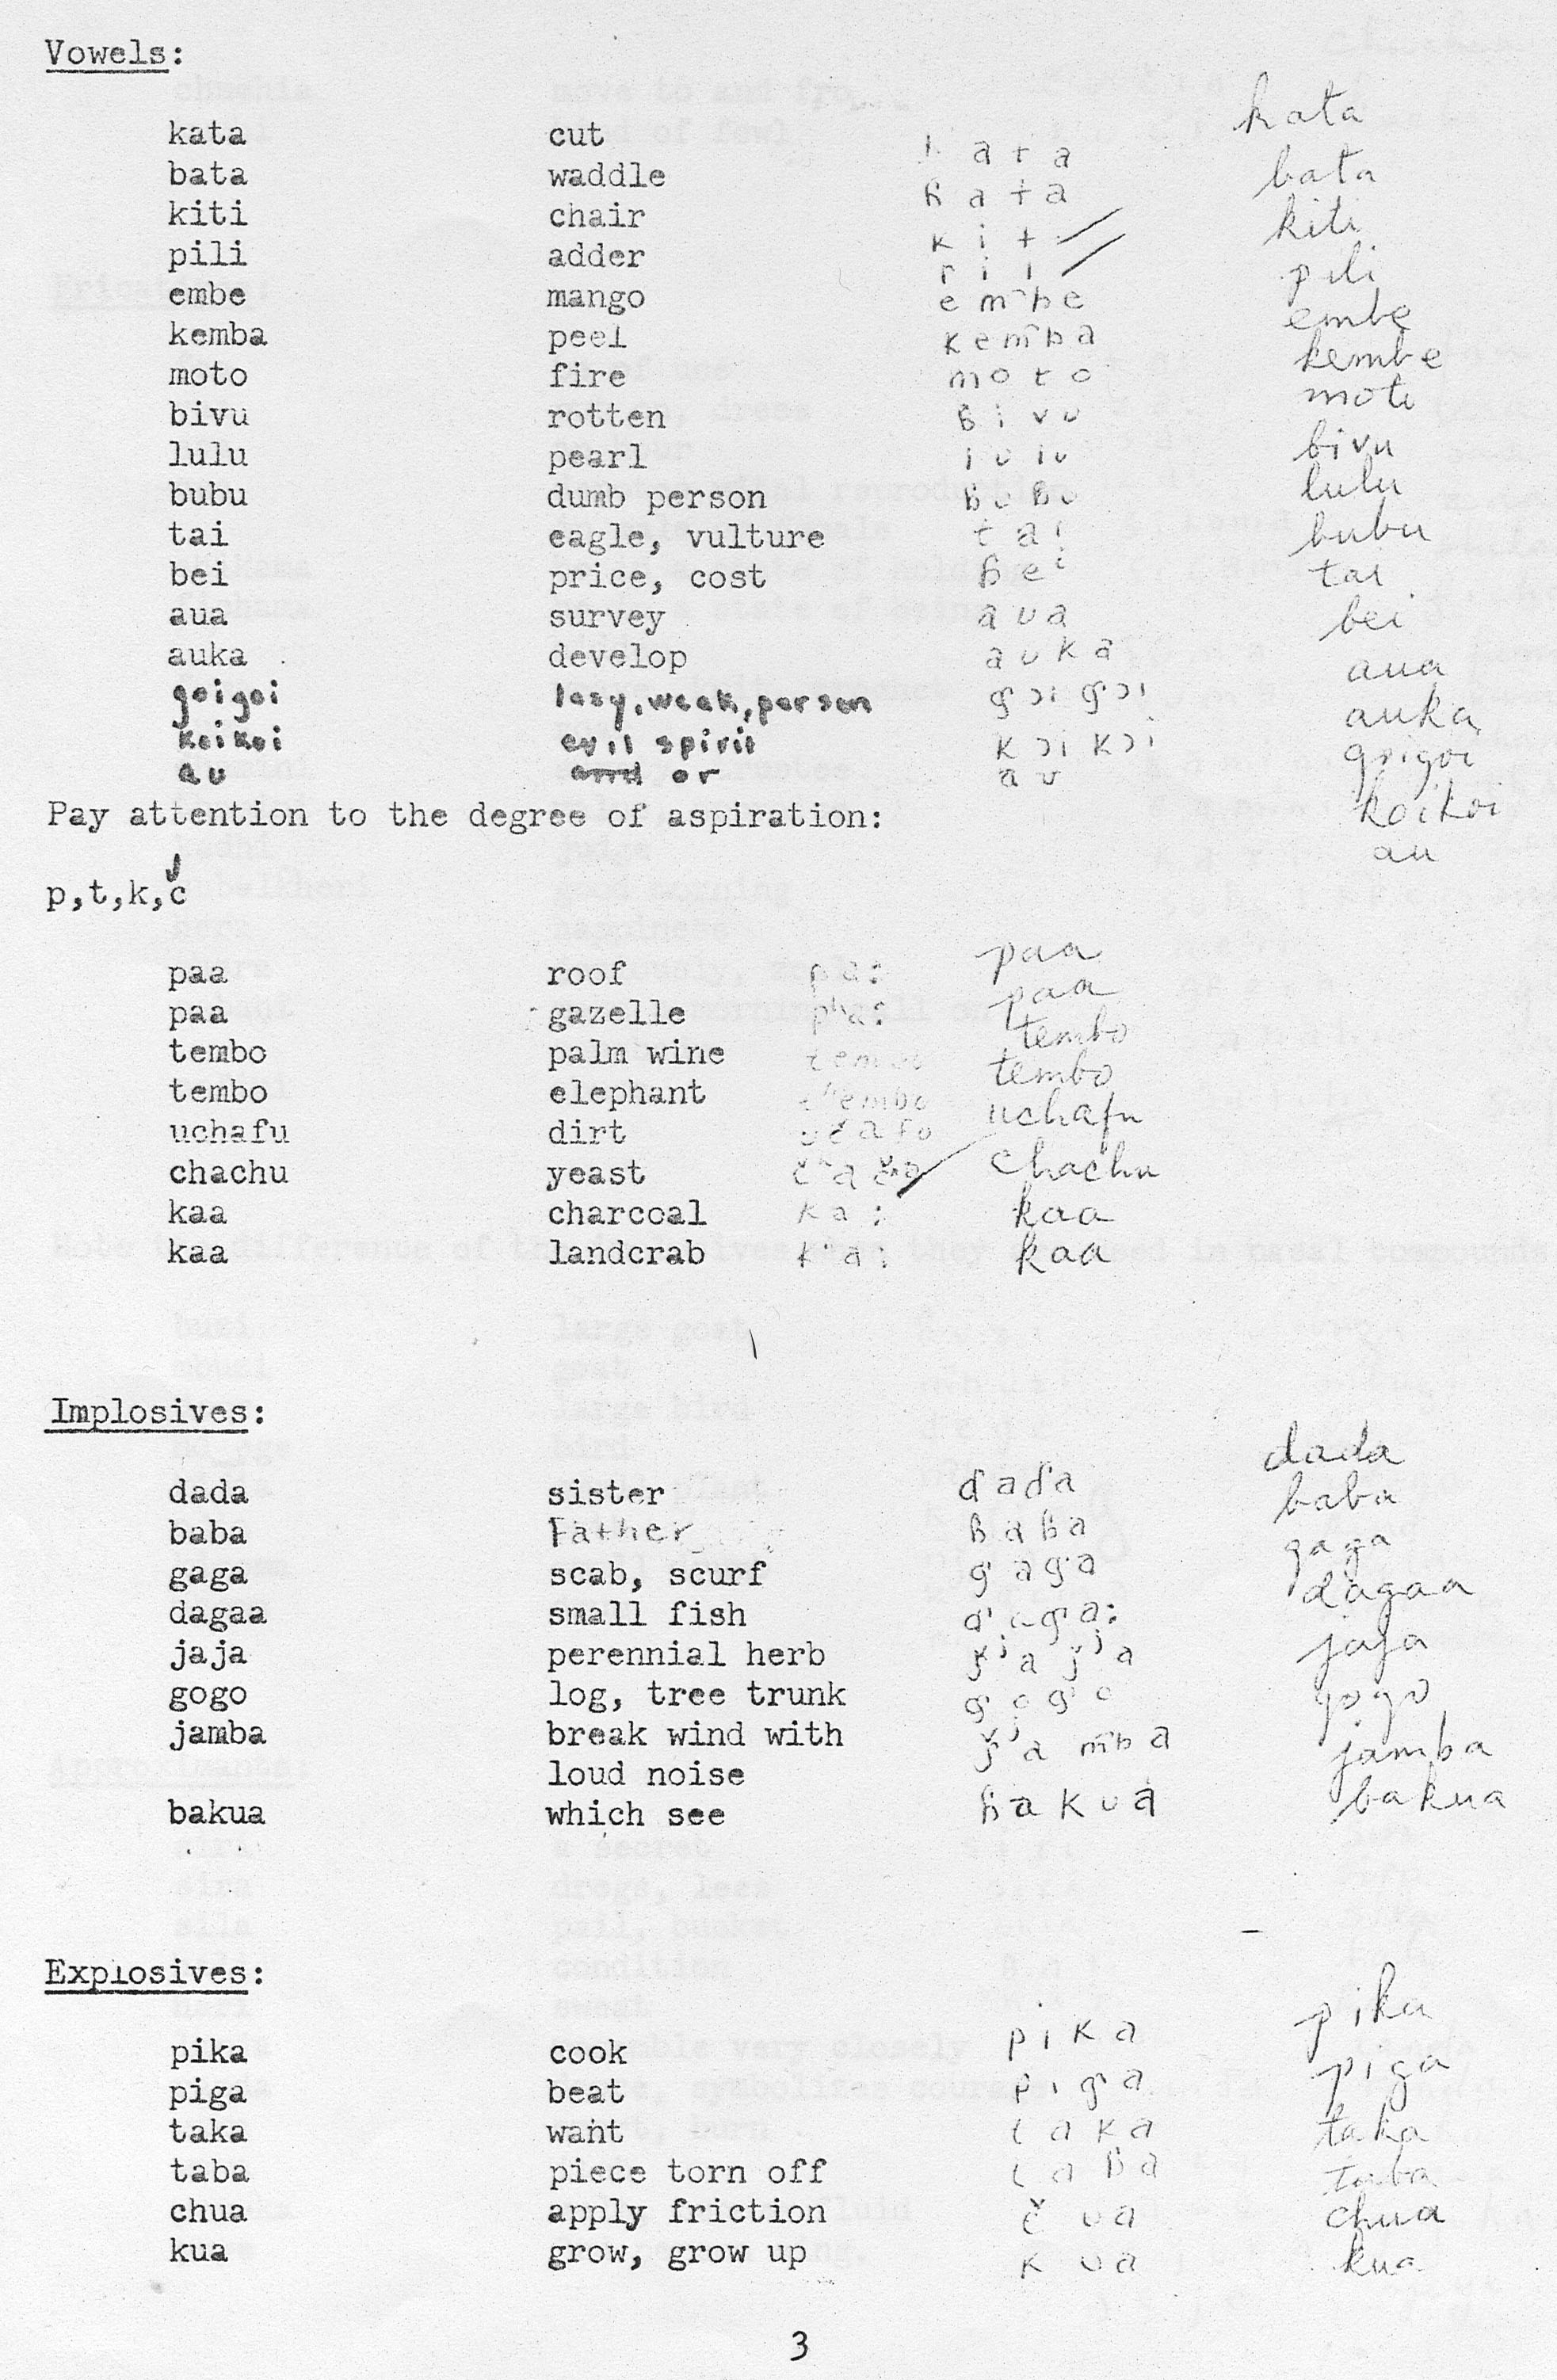 Vowels:
kata cut kata
bata waddle ɓata bata
kiti chair kiti
pili adder pili
embe mango embe
kemba peel kemba kembe
moto fire moto
bivu rotten ɓivu bivu
lulu pearl lulu lulu
bubu dumb person ɓuɓu bubu
tai eagle, vulture tai tai
bei price, cost ɓei bei
aua survey aua aua
auka develop auka auka
goigoi lazy, weak, person ɠɔiɠɔi goigoi
koikoi evil spirit kɔikɔi koikoi
au and or au au
Pay attention to the degree of aspiration:
p,t,k,č
paa roof pa: paa
paa gazelle pʰa: paa
tembo palm wine tembo tembo
tembo elephant tʰembo tembo
uchafu dirt učafu uchafu
chachu yeast chachu
kaa charcoal ka: kaa
kaa landcrab kʰa: kaa
Implosives:
dada sister ɗaɗa dada
baba Father ɓaɓa baba
gaga scab, scurf ɠaɠa gaga
dagaa small fish ɗaɠa: dagaa
jaja perennial herb jaja
gogo log, tree trunk ɠoɠo gogo
jamba break wind with jamba
loud noise
bakua which see ɓakua bakua
Explosives:
pika cook pika pika
piga beat piɠa piga
taka want taka taka
taba piece torn off taɓa taba
chua apply friction čua chua
kua grow, grow up kua kua
3